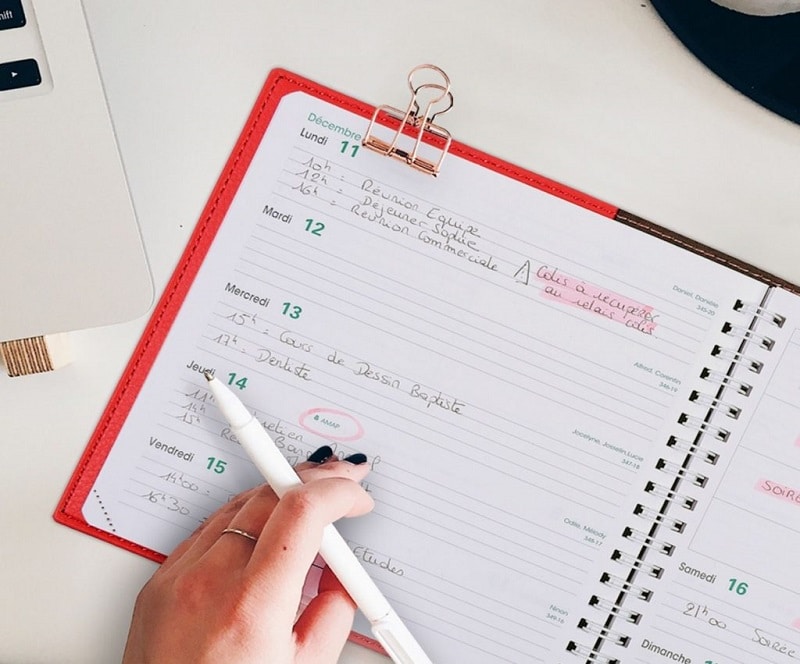 shift
Décembre
Lundi 11
10h : Réunion Equipe
12h : Déjeuner Sophie
16h : Réunion Commerciale
⚠ Colis à récupérer
au relais colis
Daniel, Danièle
345-20
Mardi 12
Alfred, Corentin
346-19
Mercredi 13
15h : Cours de Dessin Baptiste
17h : Dentiste
Jocelyne, Josselin, Lucie
347-18
Jeudi 14
AMAP
11h
14h
15h
Odile, Mélody
348-17
Vendredi 15
14h00 :
16h30 :
Etudes
Ninon
349-16
SOIRE
Samedi 16
21h00 Soirée
Dimanche